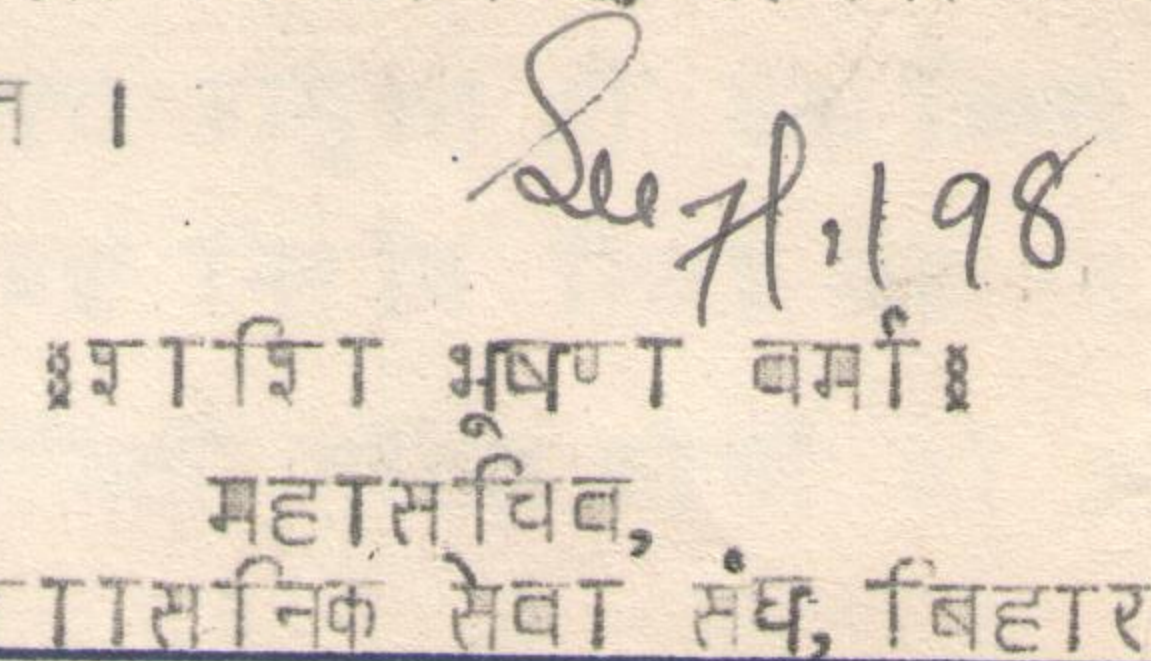 न ।
198
शशि भूषण वर्मा
महासचिव,
ासनिक सेवा संघ, बिहार